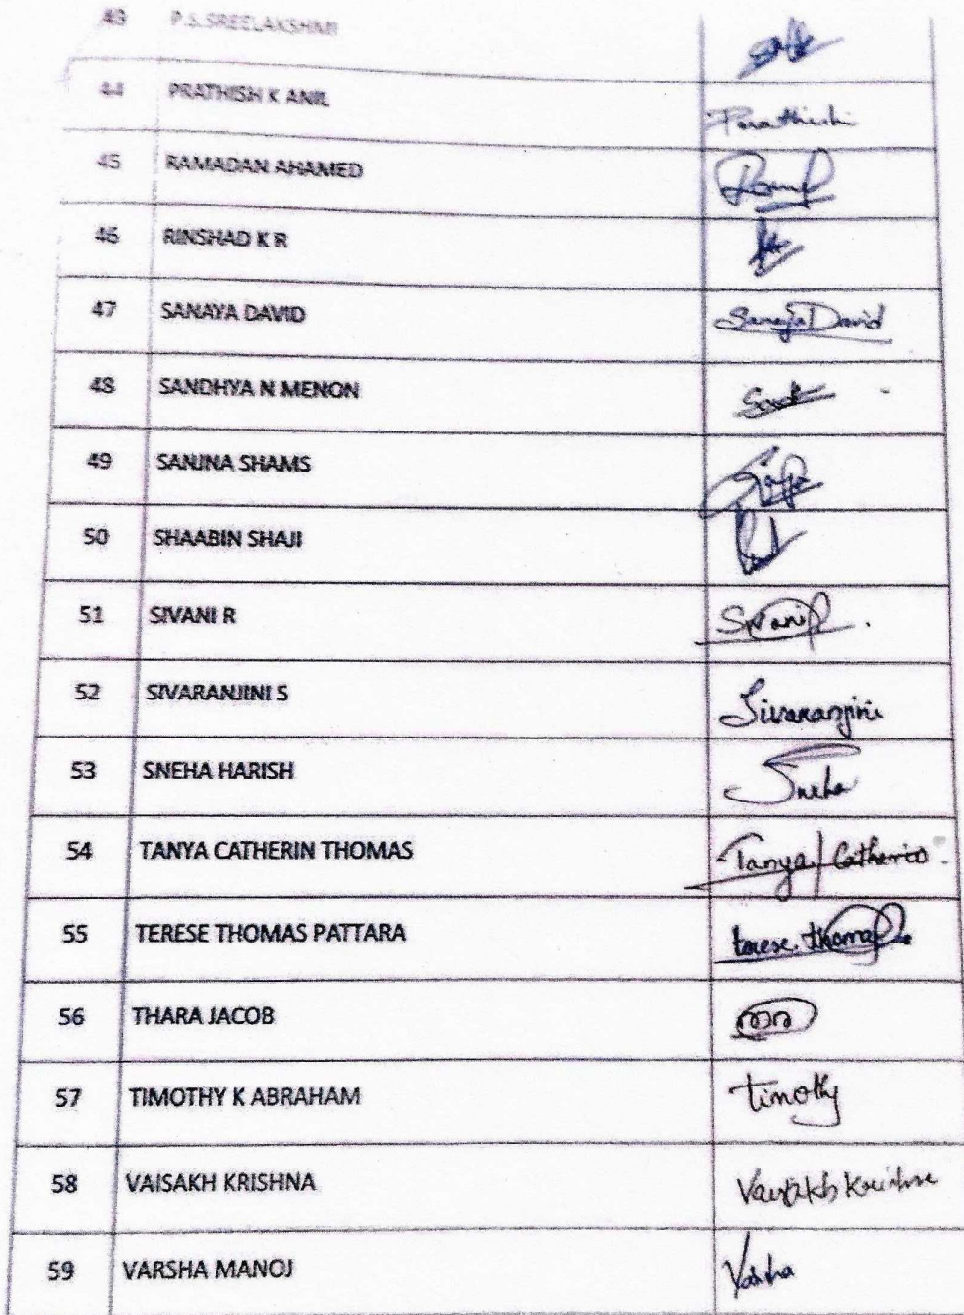 43 P.S.SREELAKSHMI
44 PRATHISH K ANIL Prathish
45 RAMADAN AHAMED
46 RINSHAD K R
47 SANAYA DAVID Sanaya David
48 SANDHYA N MENON
49 SANJNA SHAMS
50 SHAABIN SHAJI
51 SIVANI R Sivani R
52 SIVARANJINI S Sivaranjini
53 SNEHA HARISH Sneha
54 TANYA CATHERIN THOMAS Tanya Catherin
55 TERESE THOMAS PATTARA terese. thomas
56 THARA JACOB
57 TIMOTHY K ABRAHAM timothy
58 VAISAKH KRISHNA Vaisakh Krishna
59 VARSHA MANOJ Varsha